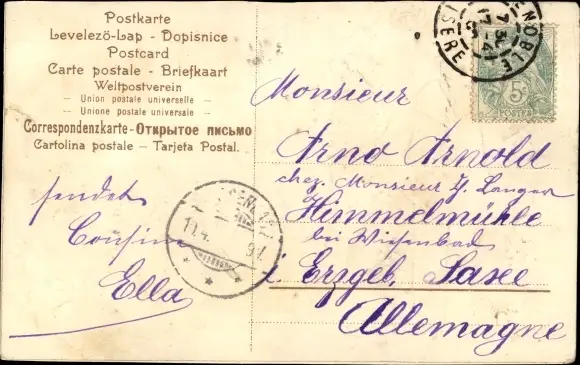 Postkarte
Levelező-Lap - Dopisnice
Postcard
Carte postale - Briefkaart
Weltpostverein
- Union postale universelle -
- Unione postale universale -
Correspondenzkarte - Открытое письмо
Cartolina postale - Tarjeta Postal.
GRENOBLE
ISERE
5c
POSTES
Monsieur
Arno Arnold
chez Monsieur Langer
Himmelmühle
bei Wiesenbad
i. Erzgeb. Saxe
Allemagne
sendet
Cousine
Ella